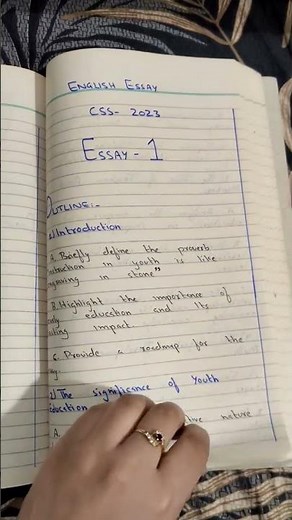 ENGLISH ESSAY
CSS- 2023
ESSAY - 1
OUTLINE:-
Introduction
A. Briefly define the proverb
in youth is like
in stone"
B. Highlight the importance of
education and its
impact
C. Provide a roadmap for the
The significance of Youth
A.
nature